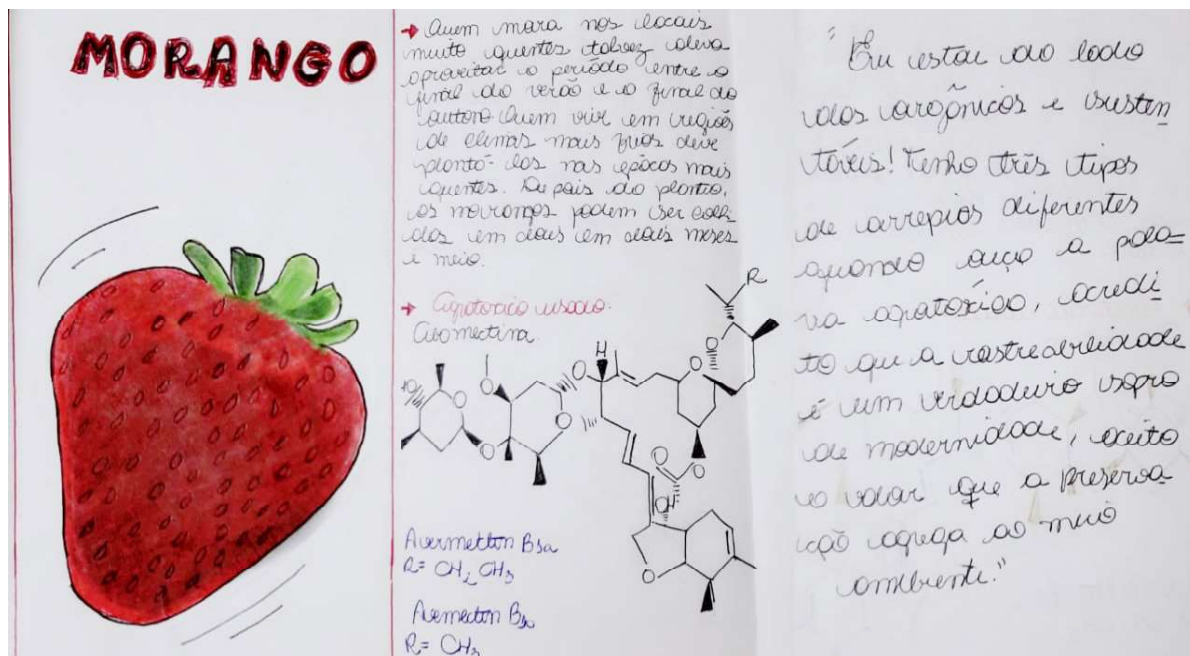 MORANGO
→ Quem mora nos locais
muito quentes talvez deva
aproveitar o período entre o
final do verão e o final do
outono Quem vive em regiões
de climas mais frios deve
plantá-los nas épocas mais
quentes. Depois do plantio,
os morangos podem ser colhi
dos em dois em dois meses
e meio.
→ Agrotóxico usado:
Abamectina.
R
H
O
O
O
O
O
O
O
O
O
O
Avermectin B1a
R= CH2 CH3
Avermectin B1b
R= CH3
"Eu estou do lado
dos orgânicos e susten
táveis! Tenho três tipos
de arrepios diferentes
quando ouço a pala=
vra agrotóxico, acredi
to que a rastreabilidade
é um verdadeiro sopro
de modernidade, aceito
o valor que a preserva
ção agrega ao meio
ambiente."